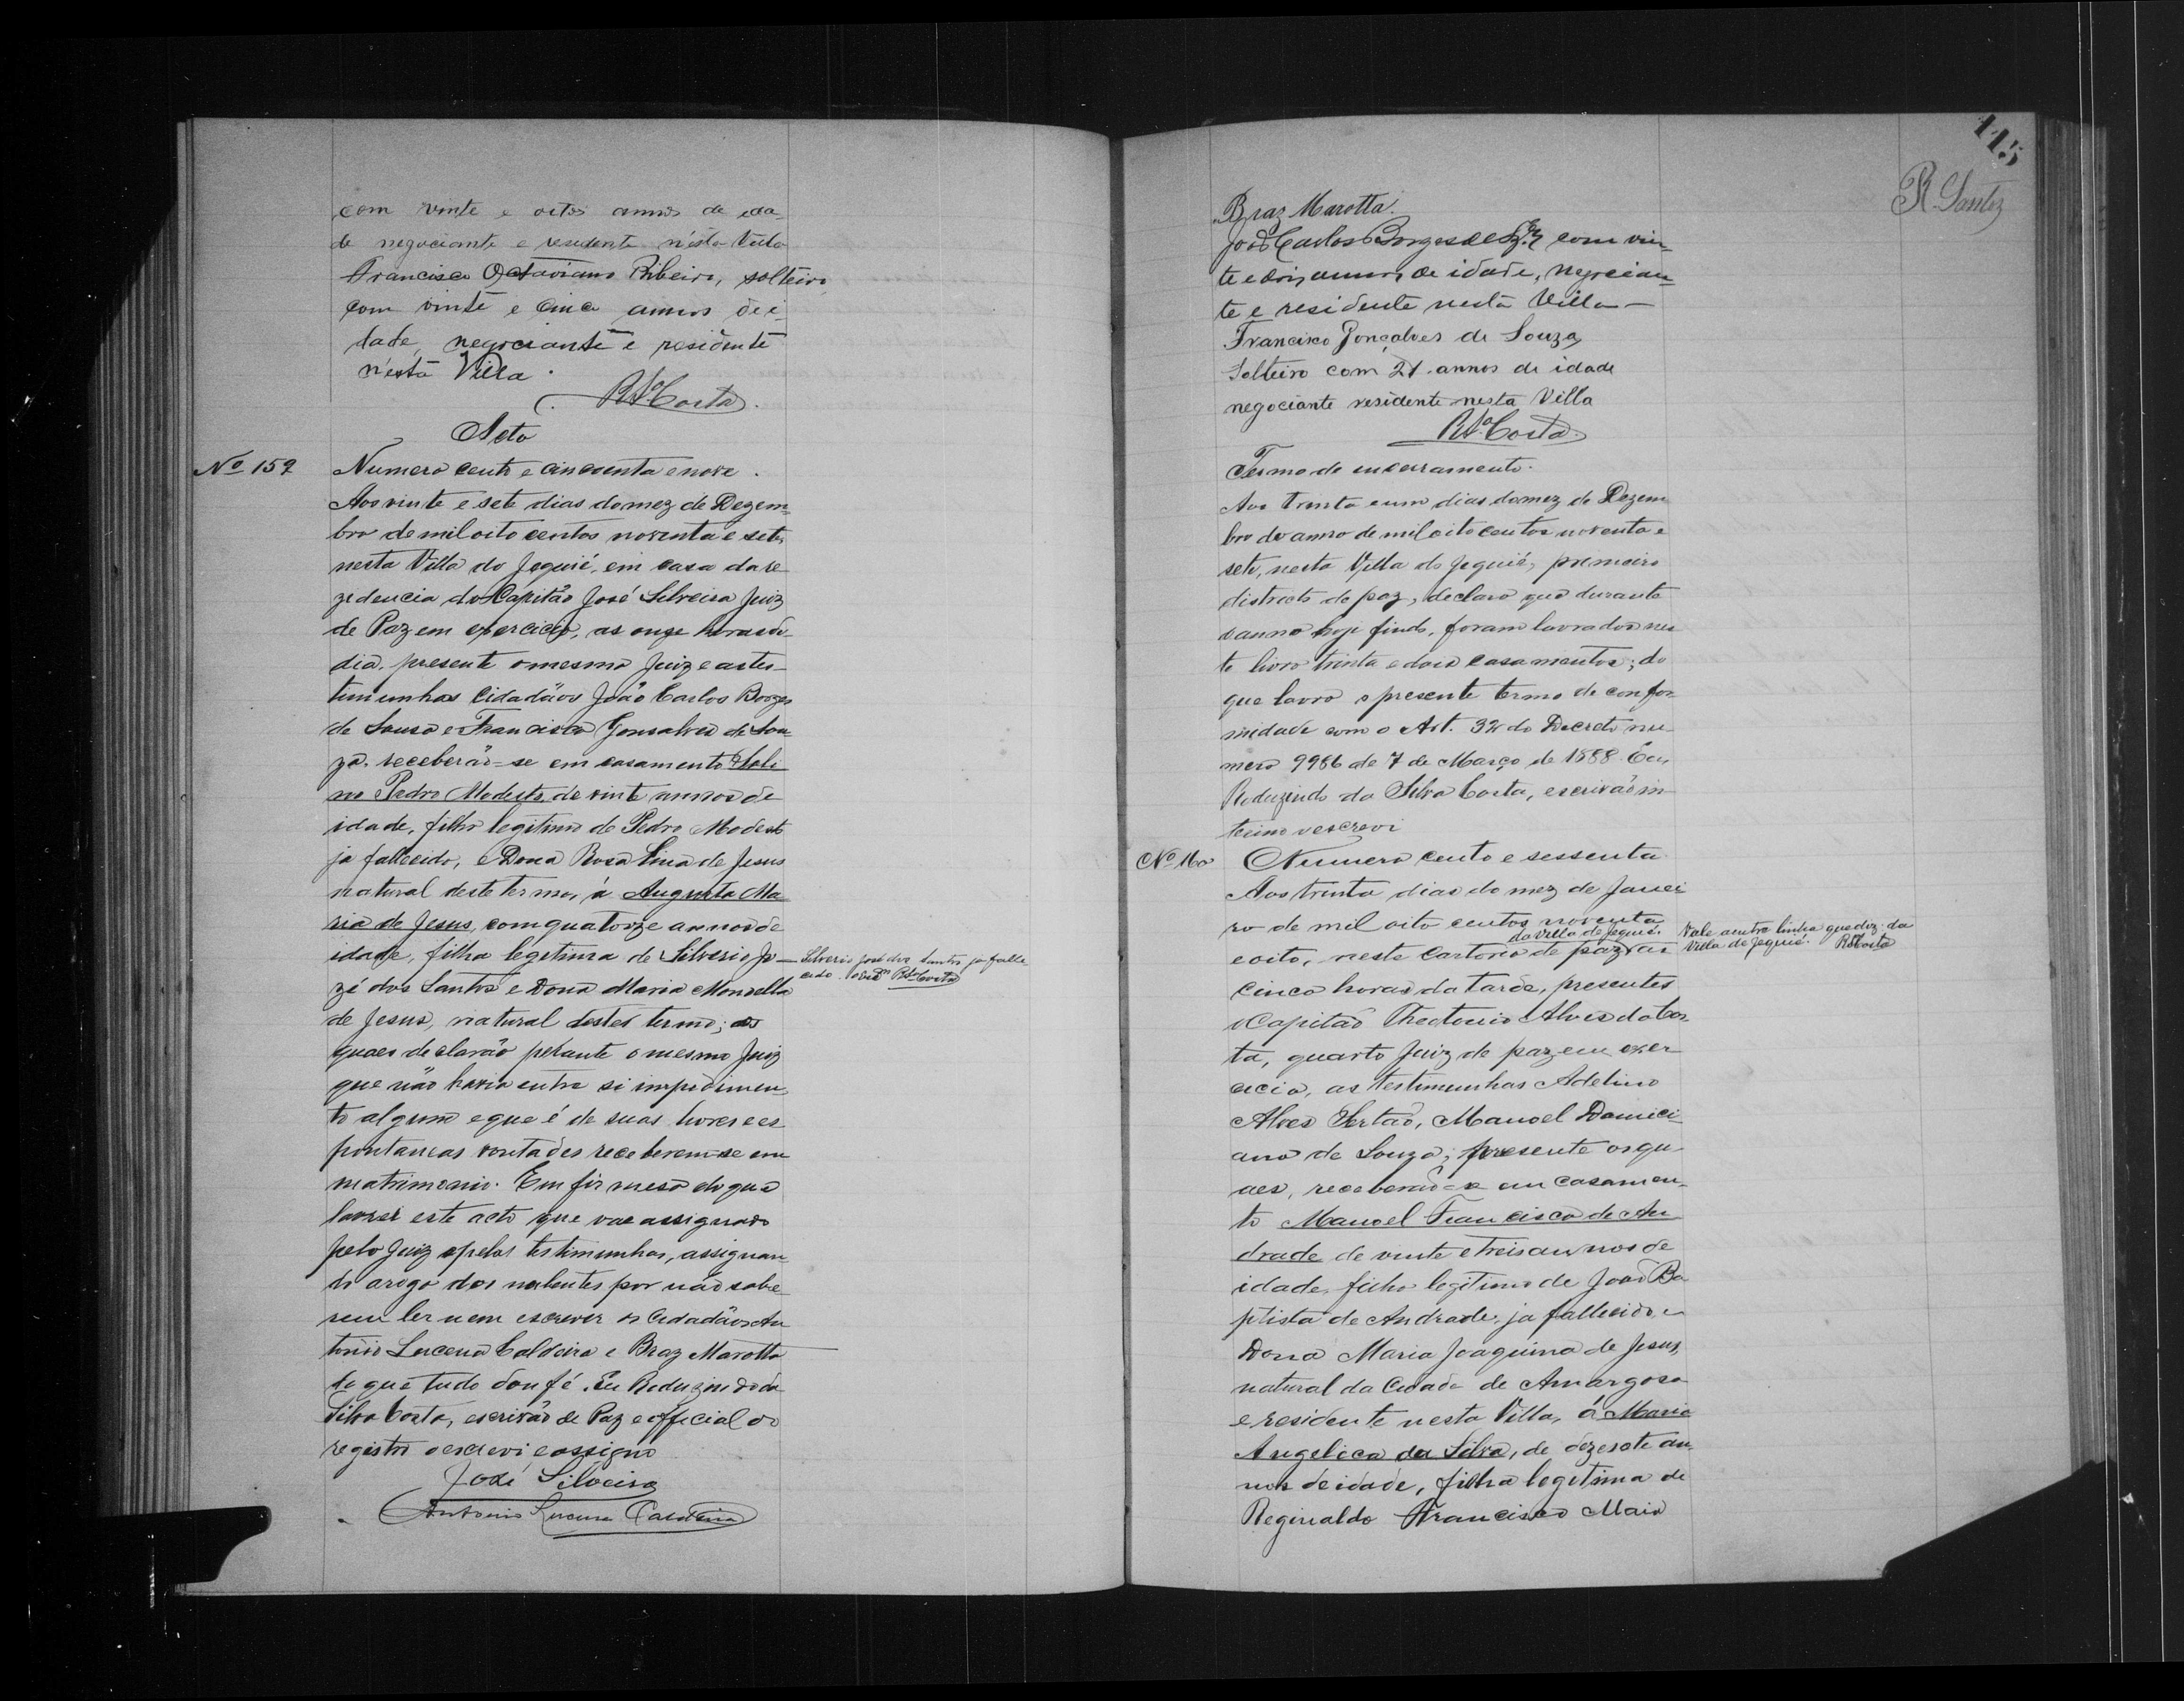 com vinte e oitos annos de eda
de negociante e residente n'esta Villa
Francisco Octaviano Ribeiro, solteiro
com vinte e cinco annos de i
dade, negociante e residente
n'esta Villa.
R S Costa
Acto
No 159 Numero cento e cincoenta e nove.
Aos vinte e sete dias do mez de Dezem
bro de mil oito centos noventa e sete,
nesta Villa do Jequié, em casa da re
zidencia do Capitão José Silveira Juiz
de Paz em exercicio, as onze horas do
dia, presente o mesmo Juiz e as tes
temunhas Cidadãos João Carlos Borges
de Sousa e Francisco Gonsalves de Sou
za, receberão-se em casamento
no Pedro Modesto, de vinte annos de
idade, filho legitimo de Pedro Modesto
ja fallecido, e Dona Rosa Lina de Jesus
natural deste termo, á Augusta Ma
ria de Jesus, com quatorze annos de
idade, filha legitima de Silverio Jo
Silverio José dos Santos ja falle
cido. R S Costa
zé dos Santos e Dona Maria
de Jesus, natural destes termo; os
quaes declarão perante o mesmo Juiz
que não havia entre si impedimen
to algum e que é de suas livres e es
pontaneas vontades receberem-se em
matrimonio. Em firmesa do que
lavrei este acto que vae assignado
pelo Juiz e pelas testimunhas, assignan
do arogo dos nubentes por não sabe
rem ler nem escrever os Cidadãos An
tonio Lucena Caldeira e Braz Marotta
do que tudo dou fé. Eu Reduzindo da
Silva Costa, escrivão de Paz e official do
registro o escrevi e assigno
José Silveira
Antonio Lucena Caldeira
115
R. Santos
Braz Marotta.
João Carlos Borges de Sza com vin
te e dois annos de idade, negocian
te e residente nesta Villa
Francisco Gonçalves de Souza,
Solteiro com 21 annos de idade
negociante residente nesta Villa
R S Costa
Termo de encerramento.
Aos trinta e um dias do mez de Dezem
bro do anno de mil oito centos noventa e
sete, nesta Villa do Jequié, primeiro
districto de paz, declaro que durante
o anno hoje findo, foram lavrados nes
te livro trinta e dois casamentos; do
que lavro o presente termo de confor
midade com o Art. 32 do Decreto nu
mero 9986 de 7 de Março de 1888. Eu,
Reduzindo da Silva Costa, escrivão in
terino o escrevi
No 160 Numero cento e sessenta
Aos trinta dias do mez de Janei
ro de mil oito centos noventa
da Villa de Jequié.
e oito, neste cartorio de paz as
Vale a entre linha que diz. da
Villa de Jequié. R S Costa
cinco horas da tarde, presentes
o Capitão Theotonio Alves da Cos
ta, quarto Juiz de paz em exer
cicio, as testimunhas Adelino
Alves Sertão, Manoel Domici
ano de Souza; presente os qu
aes, receberão-se em casamen
to Manoel Francisco de An
drade de vinte e treis annos de
idade, filho legitimo de João Ba
ptista de Andrade, ja fallecido, e
Dona Maria Joaquina de Jesus,
natural da Cidade de Amargosa
e residente nesta Villa, á Maria
Angelica da Silva, de dezesete an
nos de idade, filha legitima de
Reginaldo Francisco Maia